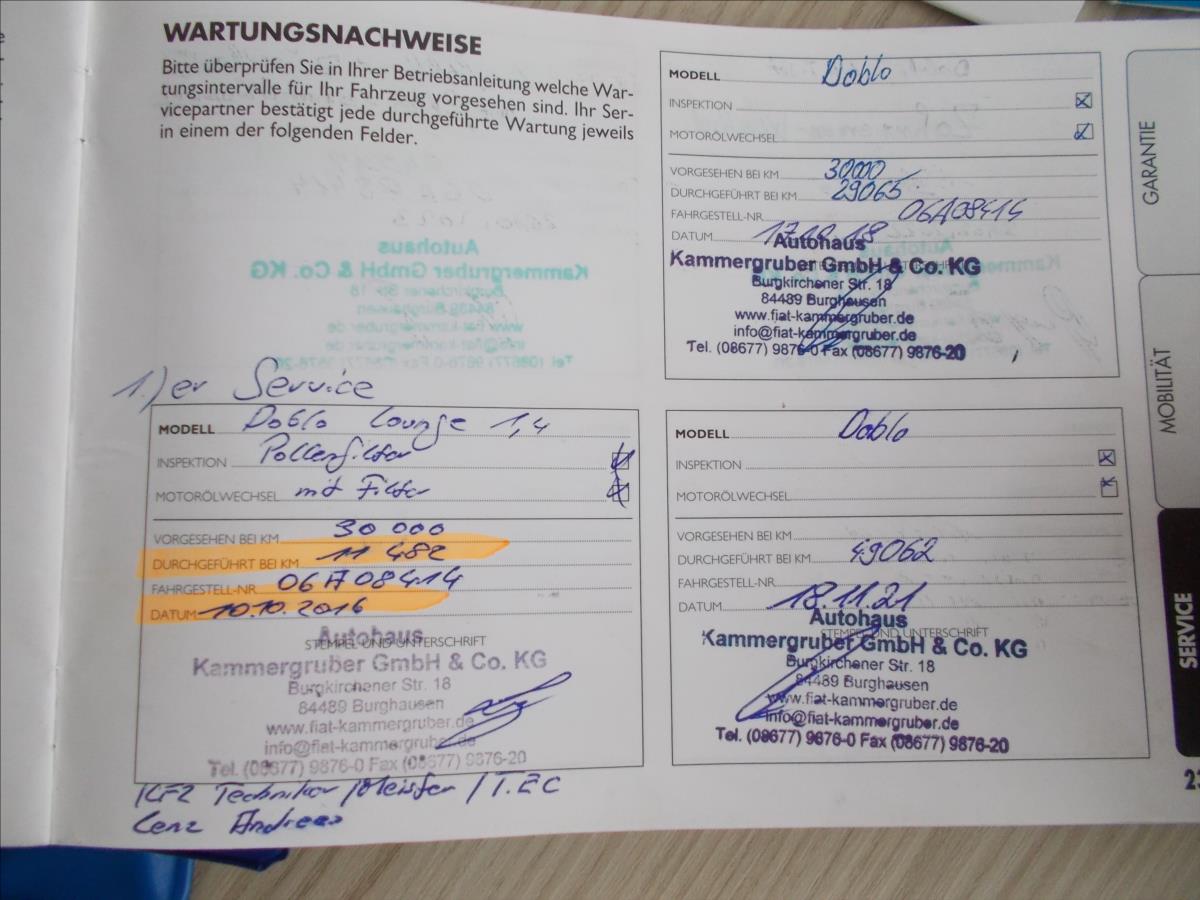 WARTUNGSNACHWEISE
Bitte überprüfen Sie in Ihrer Betriebsanleitung welche War-
tungsintervalle für Ihr Fahrzeug vorgesehen sind. Ihr Ser-
vicepartner bestätigt jede durchgeführte Wartung jeweils
in einem der folgenden Felder.
1.)er Service
MODELL Doblo Lounge 1,4
INSPEKTION Pollenfilter
MOTORÖLWECHSEL mit Filter
VORGESEHEN BEI KM 30 000
DURCHGEFÜHRT BEI KM 11 482
FAHRGESTELL-NR. 06A08414
DATUM 10.10.2016
STEMPEL UND UNTERSCHRIFT
Autohaus
Kammergruber GmbH & Co. KG
Burgkirchener Str. 18
84489 Burghausen
www.fiat-kammergruber.de
info@fiat-kammergruber.de
Tel. (08677) 9876-0 Fax (08677) 9876-20
KFZ Techniker/Meister/T.EC
Lenz Andreas
MODELL Doblo
INSPEKTION
MOTORÖLWECHSEL
VORGESEHEN BEI KM 30000
DURCHGEFÜHRT BEI KM 29065
FAHRGESTELL-NR. 06A08414
DATUM 17.10.18
Autohaus
Kammergruber GmbH & Co. KG
Burgkirchener Str. 18
84489 Burghausen
www.fiat-kammergruber.de
info@fiat-kammergruber.de
Tel. (08677) 9876-0 Fax (08677) 9876-20
MODELL Doblo
INSPEKTION
MOTORÖLWECHSEL
VORGESEHEN BEI KM
DURCHGEFÜHRT BEI KM 49062
FAHRGESTELL-NR.
DATUM 18.11.21
STEMPEL UND UNTERSCHRIFT
Autohaus
Kammergruber GmbH & Co. KG
Burgkirchener Str. 18
84489 Burghausen
www.fiat-kammergruber.de
info@fiat-kammergruber.de
Tel. (08677) 9876-0 Fax (08677) 9876-20
GARANTIE
MOBILITÄT
SERVICE